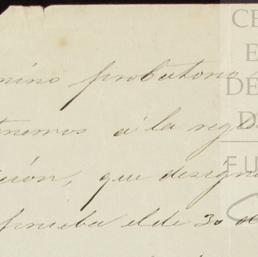 mino probatorio
tenemos á la reg
ción, que design
prueba el de 30 de
CE
E
DE
D
FU